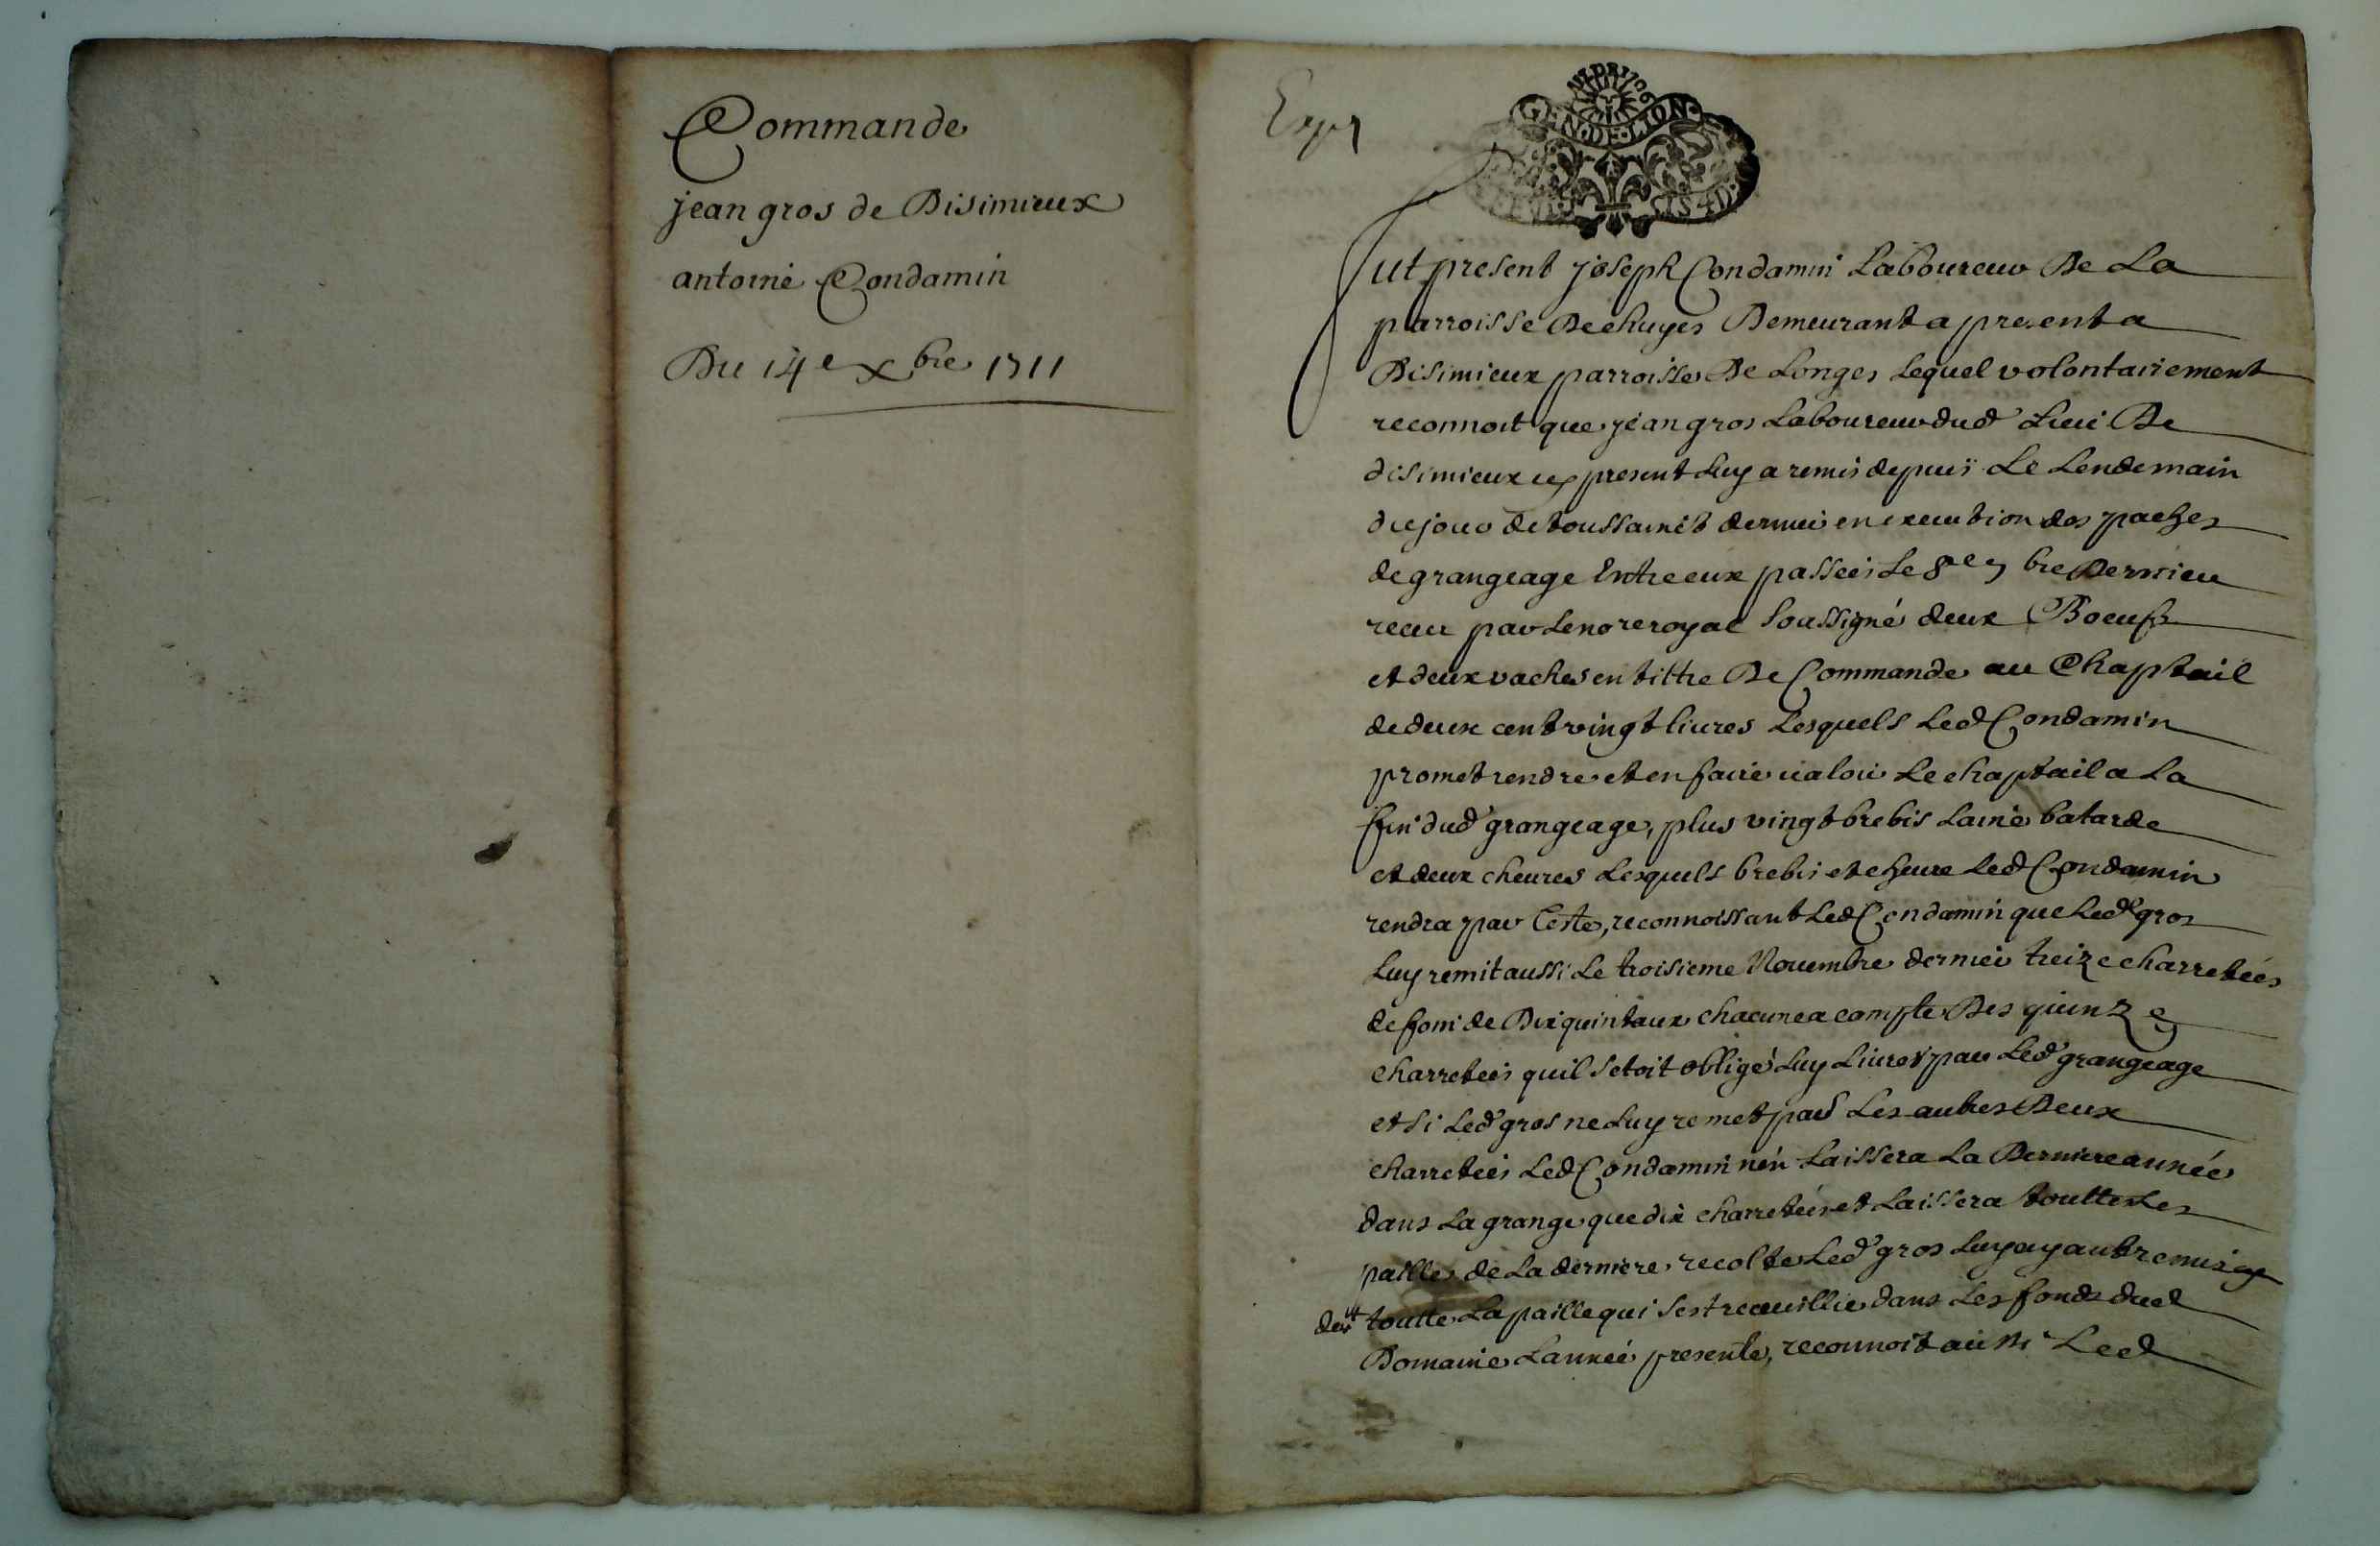 Commande
jean gros de Disimieux
antoine Condamin
Du 14e xbre 1711
GEN DE LION
Fut present joseph Condamin Laboureur De La
parroisse Dechuyes Demeurant a present a
Disimieux parroisse De Longes Lequel volontairement
reconnoit que jean gros Laboureur dud Lieu De
disimieux cy present Luy a remis depuis Le Lendemain
du jour de toussainct dernier en execution des paches
de grangeage Entre eux passées Le 8e 7bre Dernier
receu par Le nore royal soussigné deux Boeufs
et deux vaches en tittre De Commande au Chaptail
de deux cent vingt livres Lesquels Led Condamin
promet rendre et en faire valoir Le chaptail a La
fin dud grangeage, plus vingt brebis Laine batarde
et deux cheures Lesquels brebis et cheure Led Condamin
rendra par Teste, reconnoissant Led Condamin que Led gros
Luy remit aussi Le troisieme Nouembre dernier treize charretées
de foin de Dix quintaux chacune a compte Des quinze
charretées quil setoit obligé Luy Liurer par Led grangeage
et si Led gros ne Luy remet pas Les autres Deux
charretées Led Condamin nen Laissera La Derniere année
dans La grange que dix charretées et Laissera touttes Les
paille de La derniere recolte Led gros Luy ayant remis cy
devt toutte La paille qui sest recueillie dans Les fonds dud
Domaine Lannée presente, reconnoit aussi Led